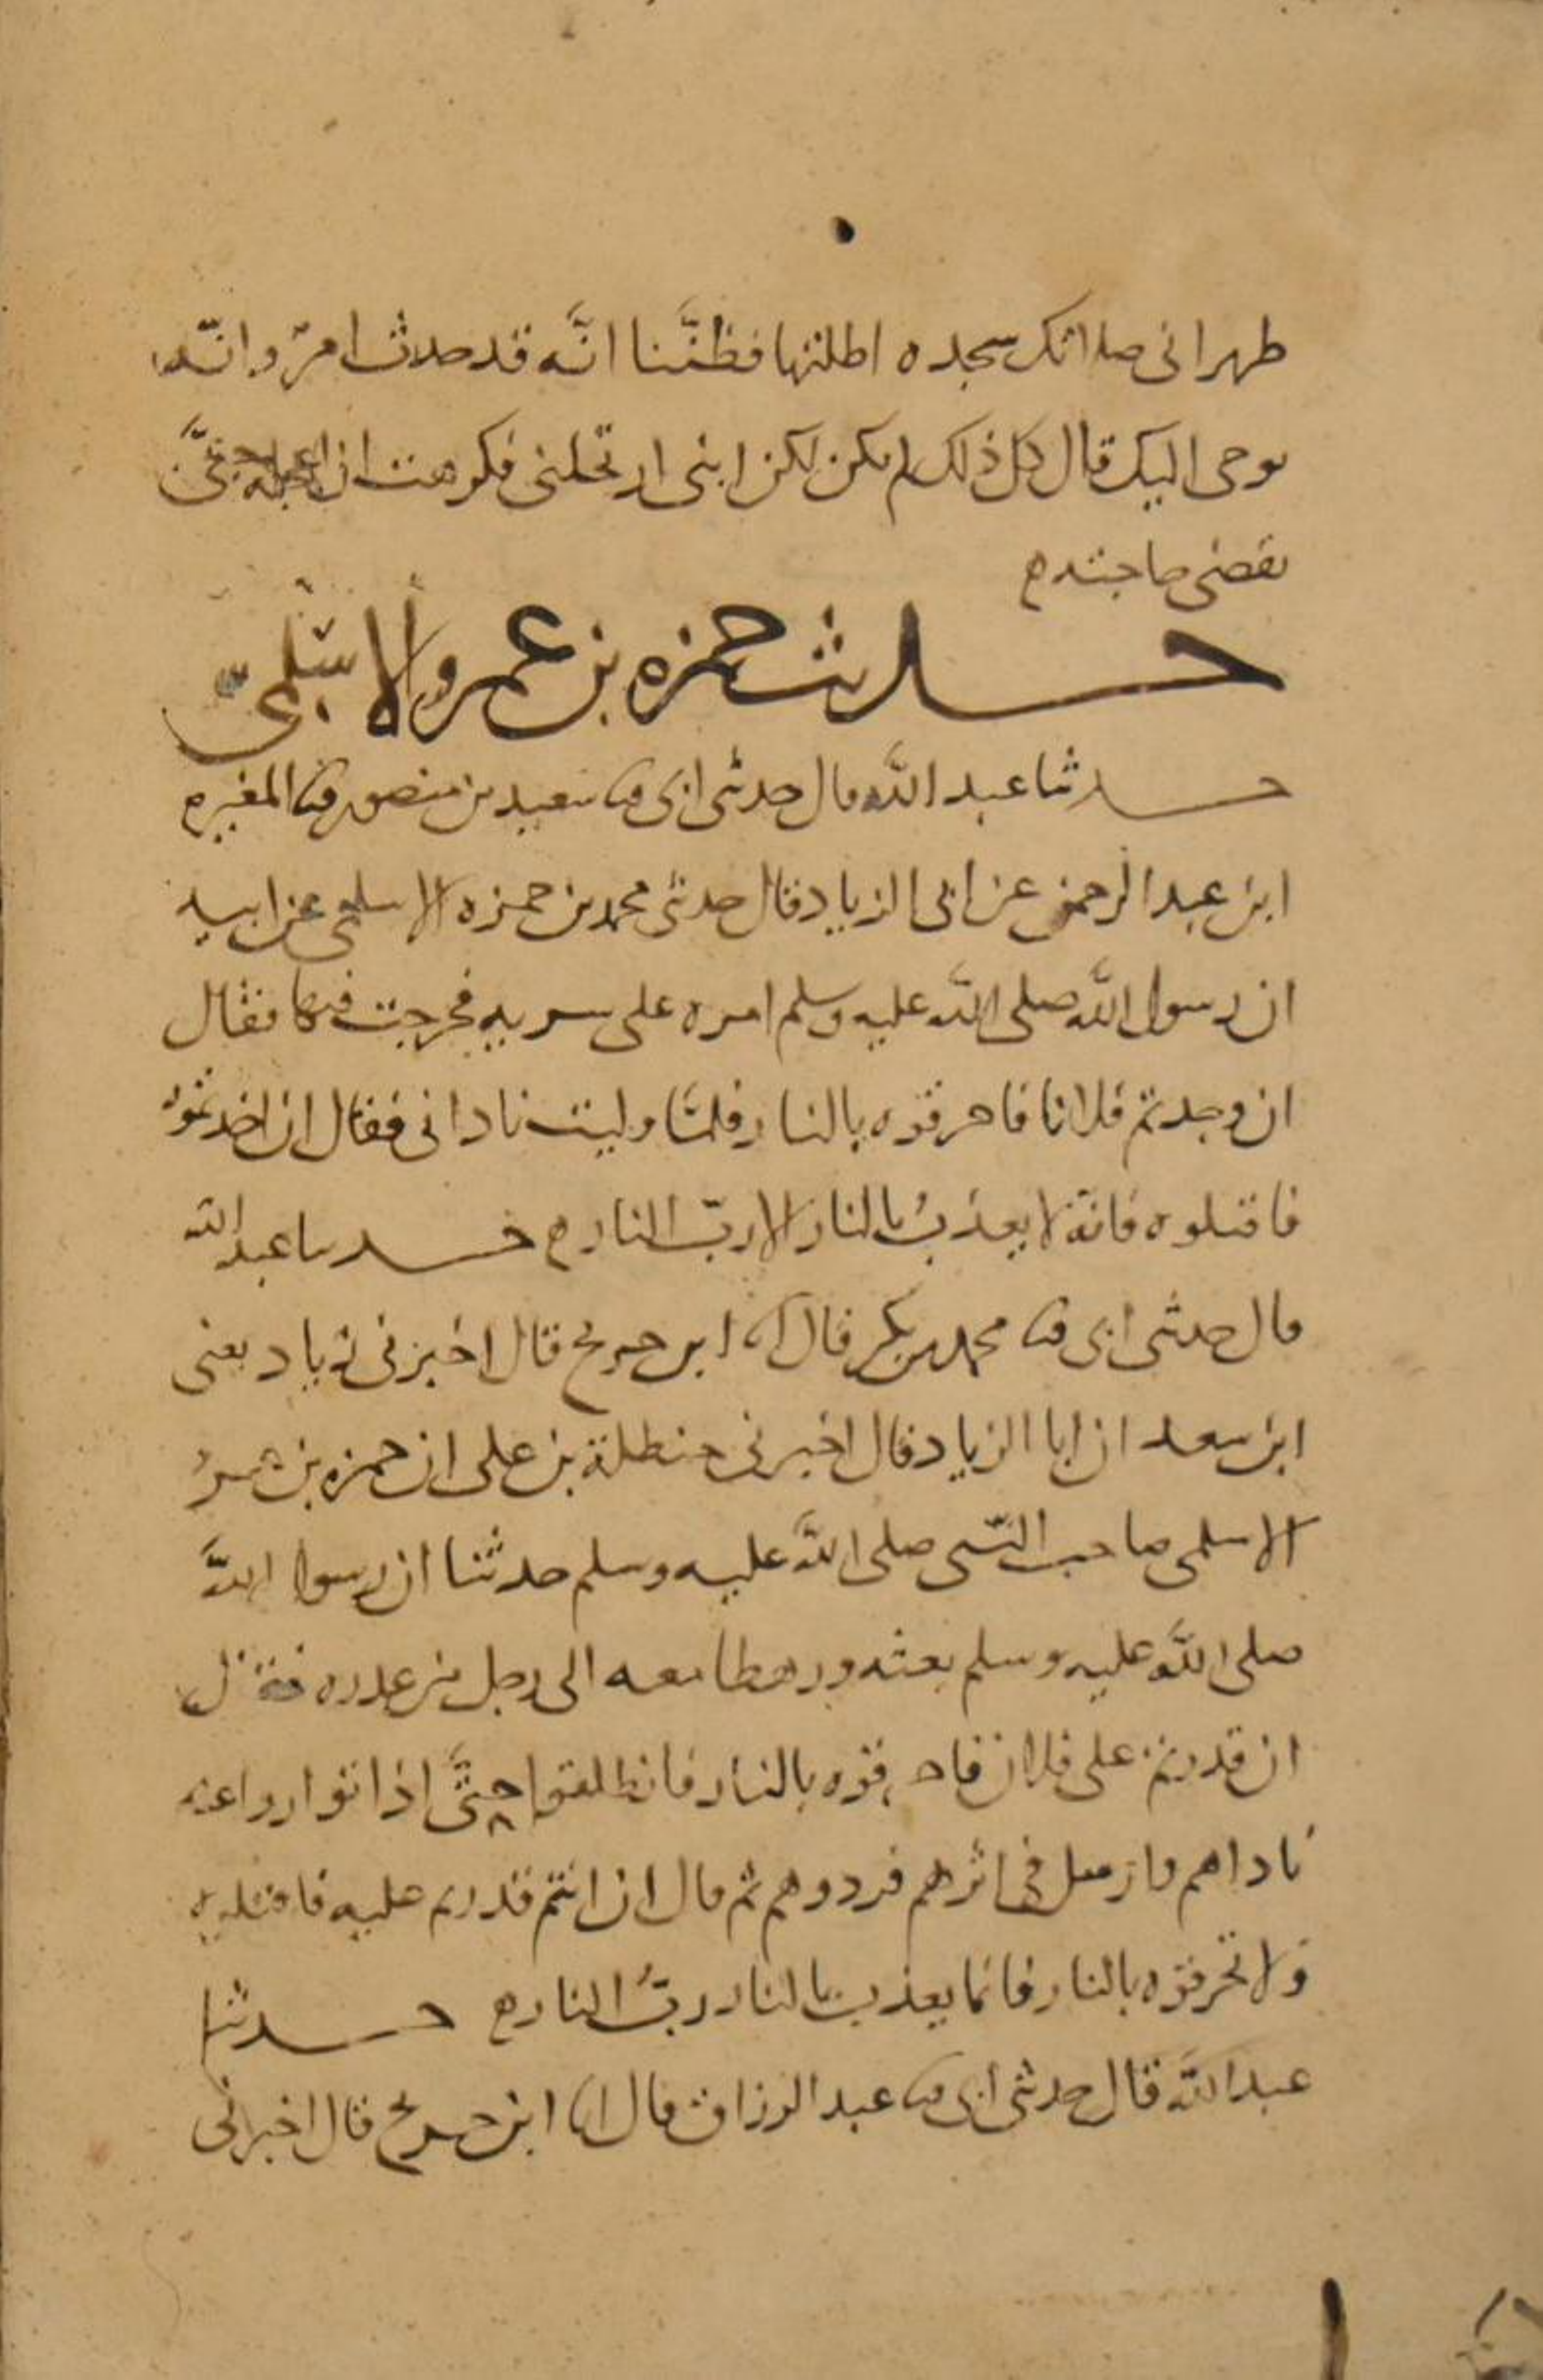 ظهراني صلاتك سجده اطلتها فظنَّنا انَّه قد حدث امرٌ وانّه
يوحى اليك قال كل ذلك لم يكن لكن ابني ارتحلني فكرهت ان اعجله حتَّى
يقضي حاجته ه
حديث حمزه بن عمرو الاسلميّ
حدثنا عبد الله قال حدثني ابي ثنا سعيد بن منصور ثنا المغيره
ابن عبد الرحمن عن ابي الزياد قال حدثني محمد بن حمزه الاسلمي عن ابيه
ان رسول الله صلى الله عليه وسلم امره على سريه فخرجت فيها فقال
ان وجدتم فلانا فاحرقوه بالنار فلمَّا وليت ناداني فقال ان اخذتموه
فاقتلوه فانّه لا يعذبُ بالنار الا ربّ النار ه حدثنا عبد الله
قال حدثني ابي ثنا محمد بن بكر قال انا ابن جريج قال اخبرني زياد يعني
ابن سعد ان ابا الزياد قال اخبرني حنظلة بن علي ان حمزه بن عمرو
الاسلمي صاحب النّبي صلى اللَّه عليه وسلم حدثنا ان رسول اللَّه
صلى اللَّه عليه وسلم بعثه ورهطا معه الى رجل من عذره فقال
ان قدرتم على فلان فاحرقوه بالنار فانطلقوا حتَّى اذا تواروا عنه
ناداهم وارسل في اثرهم فردوهم ثم قال ان انتم قدرتم عليه فاقتلوه
ولا تحرقوه بالنار فانما يعذب بالنار ربُّ النار ه حدثنا
عبد اللَّه قال حدثني ابي ثنا عبد الرزاق قال انا ابن جريج قال اخبرني